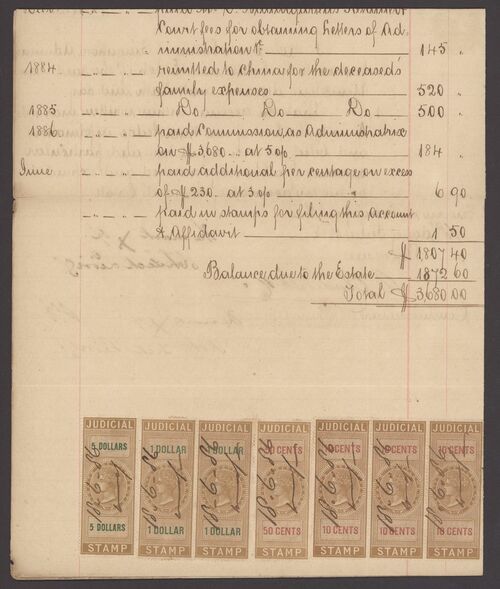 Court fees for obtaining Letters of Ad-
ministration &c. 145 "
1884 " " " remitted to China for the deceased's
family expenses 520 "
1885 " " " Do Do Do 500 "
1886 " " " paid Commission as Administratrix
on $3680 .. at 5 op 184 "
June " " " paid additional per centage on excess
of $230 . at 3 op " 6 90
Paid in stamps for filing this account
& Affidavit 1 50
$ 1807 40
Balance due to the Estate 1872 60
Total $ 3680 00
JUDICIAL JUDICIAL JUDICIAL JUDICIAL JUDICIAL JUDICIAL JUDICIAL
5 DOLLARS 1 DOLLAR 1 DOLLAR 50 CENTS 10 CENTS 10 CENTS 10 CENTS
5 DOLLARS 1 DOLLAR 1 DOLLAR 50 CENTS 10 CENTS 10 CENTS 10 CENTS
STAMP STAMP STAMP STAMP STAMP STAMP STAMP